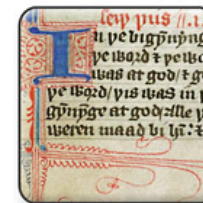 In ye bigynyng
ye word ⁊ ye wo
was at god/ ⁊ g
ye word/ yis was in
gynynge at god/ alle y
weren maad bi